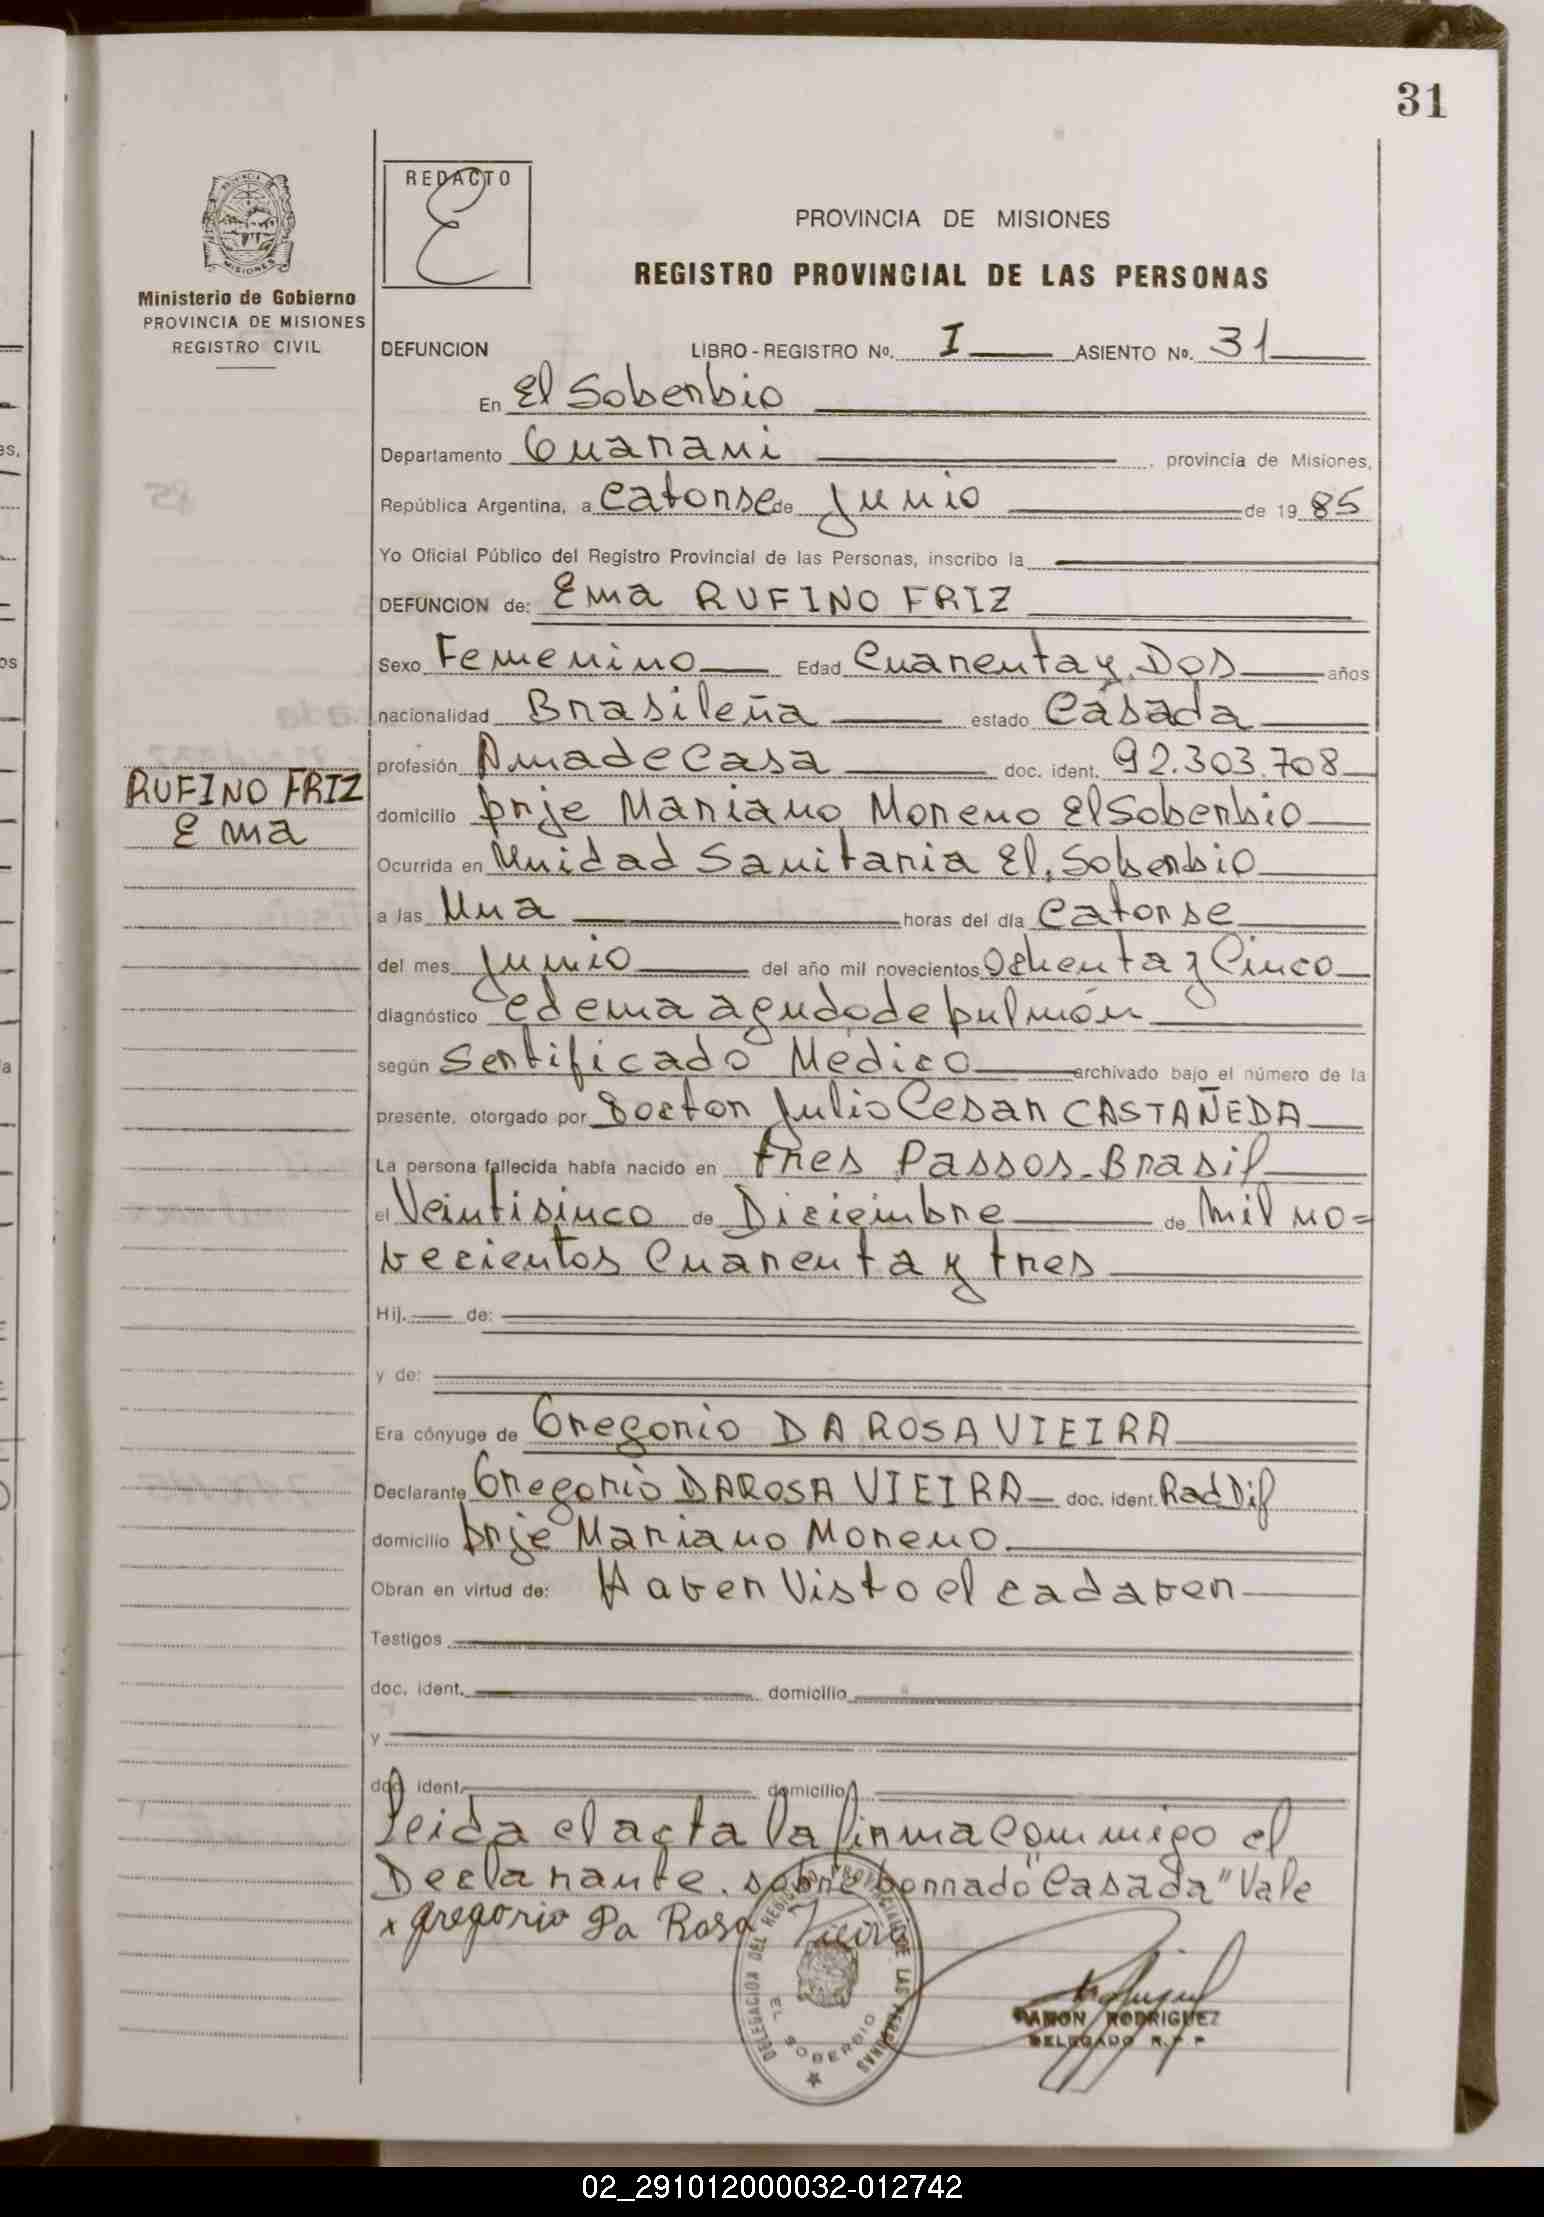 31
REDACTO
E
PROVINCIA DE MISIONES
REGISTRO PROVINCIAL DE LAS PERSONAS
PROVINCIA DE
MISIONES
Ministerio de Gobierno
PROVINCIA DE MISIONES
REGISTRO CIVIL
DEFUNCION LIBRO - REGISTRO No. I ASIENTO No. 31
En El Soberbio
Departamento Guarani, provincia de Misiones,
República Argentina, a Catorse de Junio de 19 85
Yo Oficial Público del Registro Provincial de las Personas, inscribo la
DEFUNCION de: Ema RUFINO FRIZ
Sexo Femenino Edad Cuarenta y Dos años
nacionalidad Brasileña estado Casada
profesión Ama de Casa doc. ident. 92.303.708
RUFINO FRIZ
Ema
domicilio prje Mariano Moreno El Soberbio
Ocurrida en Unidad Sanitaria El Soberbio
a las Una horas del día Catorse
del mes Junio del año mil novecientos Ochenta y Cinco
diagnóstico edema agudo de pulmón
según Sertificado Médico archivado bajo el número de la
presente, otorgado por Doctor Julio Cesar CASTAÑEDA
La persona fallecida había nacido en tres Passos - Brasil
el Veintisinco de Diciembre de mil no=
vecientos Cuarenta y tres
Hij. de:
y de:
Era cónyuge de Gregorio DA ROSA VIEIRA
Declarante Gregorio DA ROSA VIEIRA doc. ident. Rad Dif
domicilio prje Mariano Moreno
Obran en virtud de: Haver Visto el cadaver
Testigos
doc. ident. domicilio
y
doc. ident. domicilio
Leida el acta la firma commigo el
Declarante. sobre borrado "Casada" Vale
x gregorio Da Rosa Vieira
DELEGACION DEL REGISTRO PROVINCIAL DE LAS PERSONAS
EL SOBERBIO
RAMON RODRIGUEZ
DELEGADO R.P.P
02_291012000032-012742